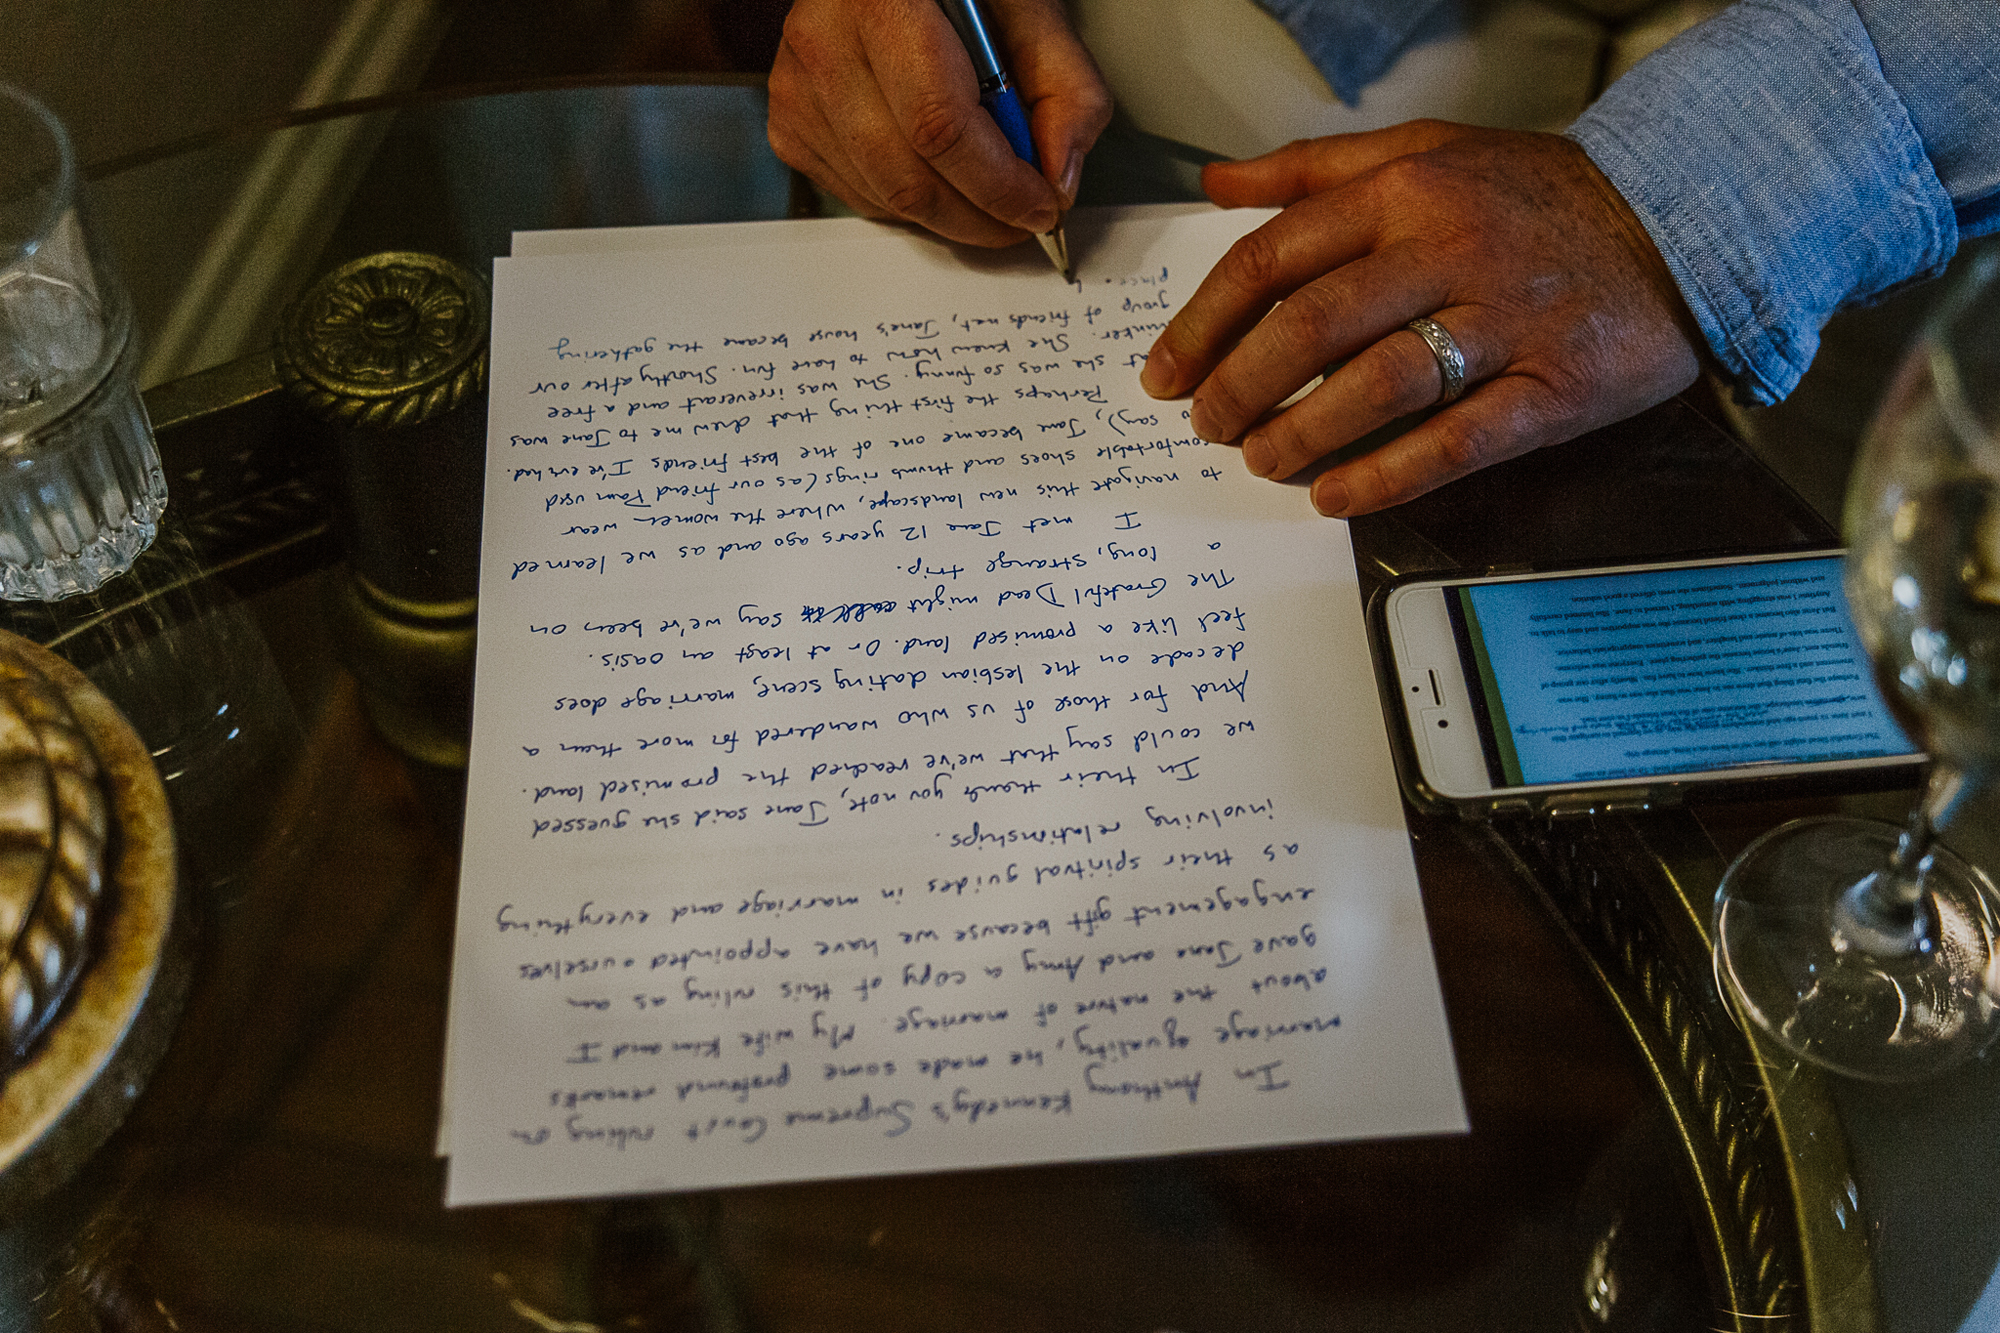 In Anthony Kennedy's Supreme Court ruling on
marriage equality, he made some profound remarks
about the nature of marriage. My wife Kim and I
gave Jane and Amy a copy of this ruling as an
engagement gift because we have appointed ourselves
as their spiritual guides in marriage and everything
involving relationships.
In their thank you note, Jane said she guessed
we could say that we've reached the promised land.
And for those of us who wandered for more than a
decade on the lesbian dating scene, marriage does
feel like a promised land. Or at least an oasis.
The Grateful Dead might say we've been on
a long, strange trip.
I met Jane 12 years ago and as we learned
to navigate this new landscape, where the women wear
comfortable shoes and thumb rings (as our friend Pam used
to say), Jane became one of the best friends I've ever had.
Perhaps the first thing that drew me to Jane was
that she was so funny. She was irreverent and a free
thinker. She knew how to have fun. Shortly after our
group of friends met, Jane's house became the gathering
place.